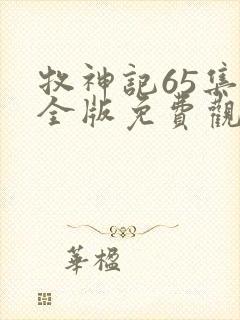 牧神記65集
全版免費觀
華楹